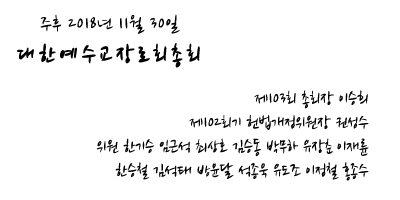 주후 2018년 11월 30일
대한예수교장로회총회
제103회 총회장 이승희
제102회기 헌법개정위원장 권성수
위원 한기승 임근석 최상호 김승동 박무하 유장춘 이재륜
한승철 김석태 박윤달 석종욱 유도조 이정철 홍종수